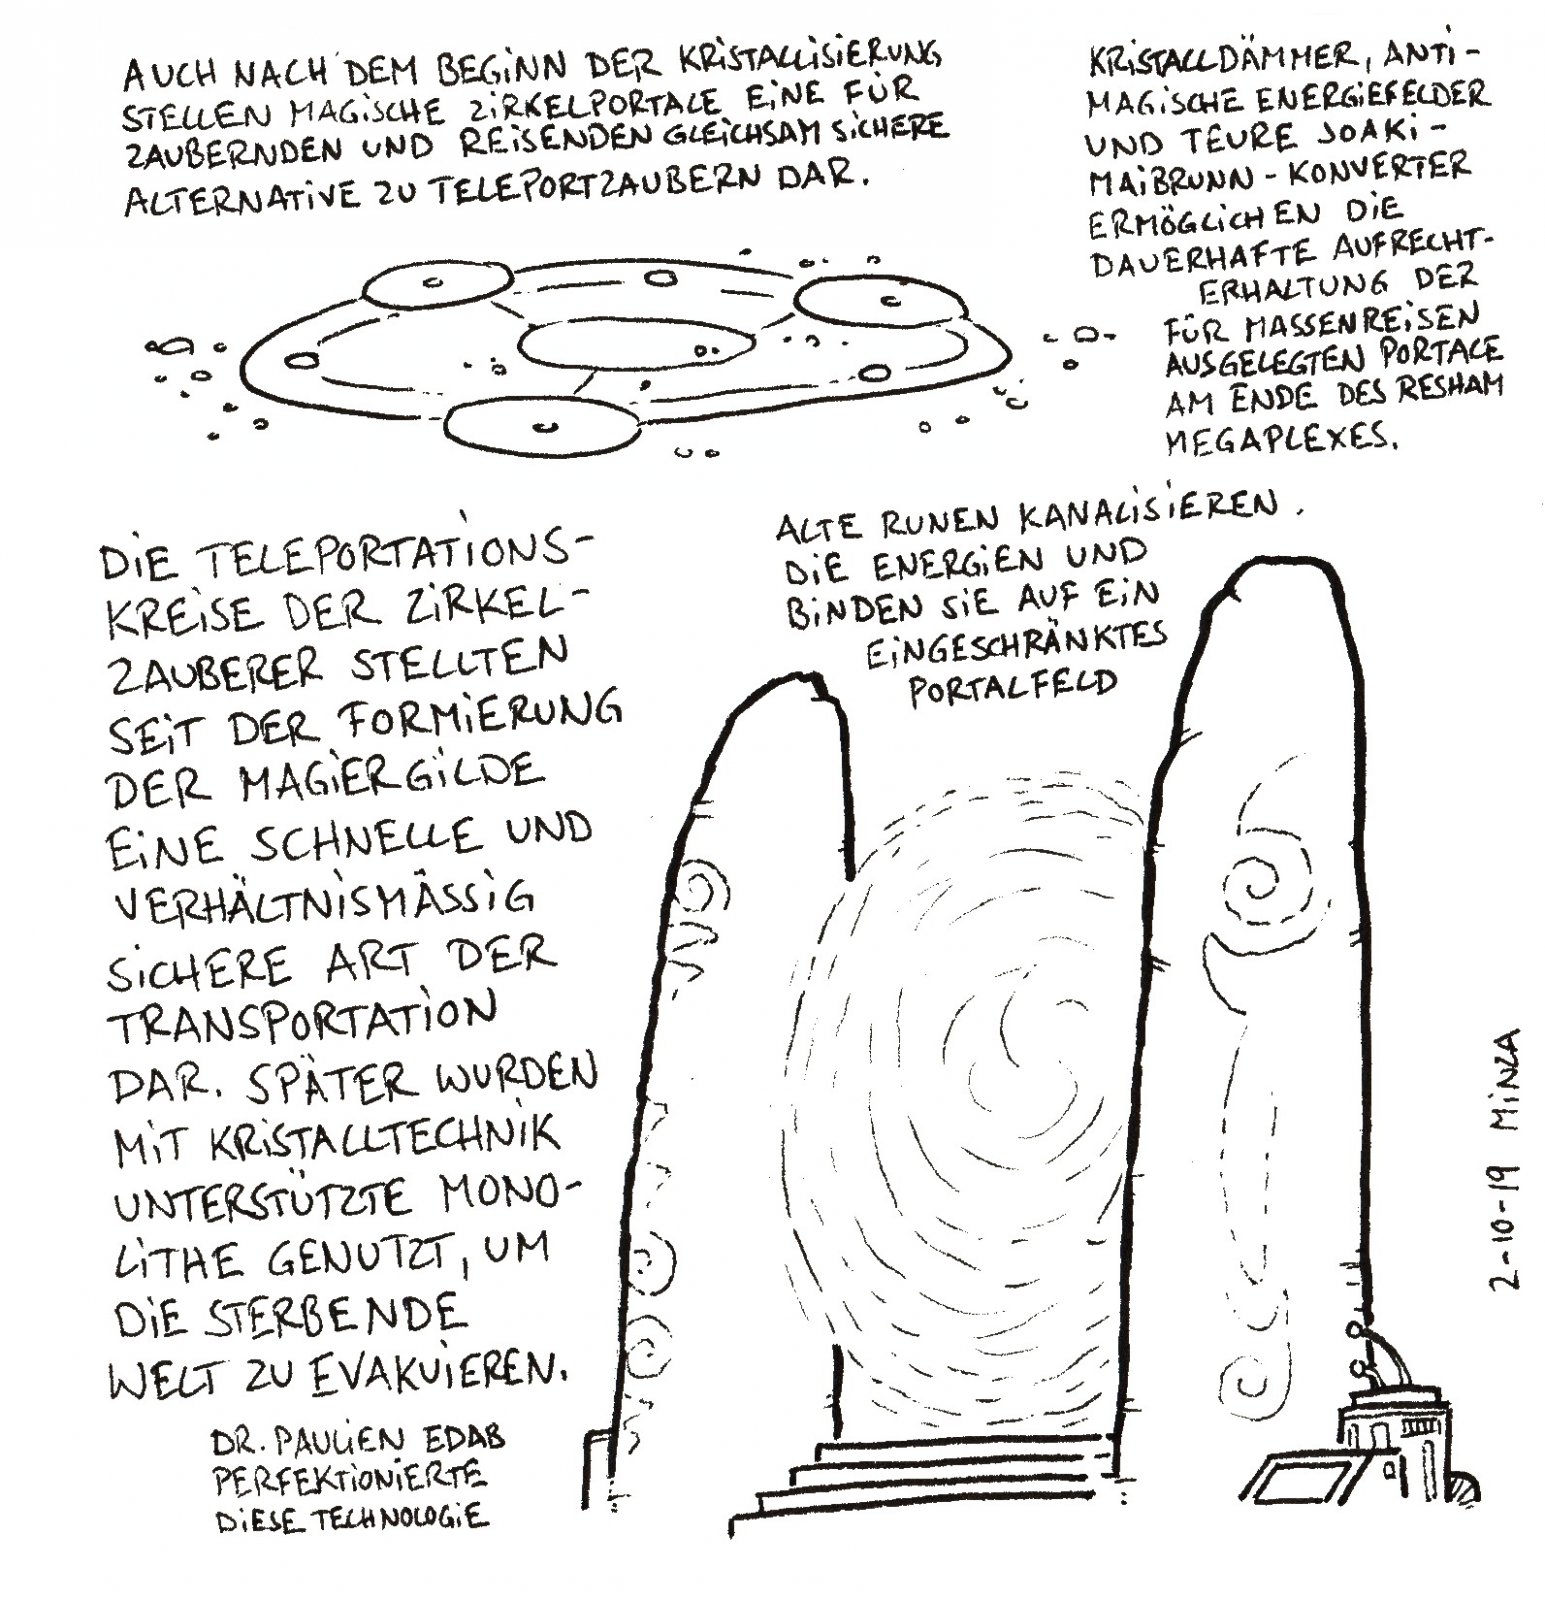 AUCH NACH DEM BEGINN DER KRISTALLISIERUNG
STELLEN MAGISCHE ZIRKELPORTALE EINE FÜR
ZAUBERNDEN UND REISENDEN GLEICHSAM SICHERE
ALTERNATIVE ZU TELEPORTZAUBERN DAR.
KRISTALLDÄMMER, ANTI-
MAGISCHE ENERGIEFELDER
UND TEURE JOAKI-
MAIBRUNN-KONVERTER
ERMÖGLICHEN DIE
DAUERHAFTE AUFRECHT-
ERHALTUNG DER
FÜR MASSENREISEN
AUSGELEGTEN PORTALE
AM ENDE DES RESHAM
MEGAPLEXES.
DIE TELEPORTATIONS-
KREISE DER ZIRKEL-
ZAUBERER STELLTEN
SEIT DER FORMIERUNG
DER MAGIERGILDE
EINE SCHNELLE UND
VERHÄLTNISMÄSSIG
SICHERE ART DER
TRANSPORTATION
DAR. SPÄTER WURDEN
MIT KRISTALLTECHNIK
UNTERSTÜTZTE MONO-
LITHE GENUTZT, UM
DIE STERBENDE
WELT ZU EVAKUIEREN.
DR. PAULIEN EDAB
PERFEKTIONIERTE
DIESE TECHNOLOGIE
ALTE RUNEN KANALISIEREN.
DIE ENERGIEN UND
BINDEN SIE AUF EIN
EINGESCHRÄNKTES
PORTALFELD
2-10-19 MINZA